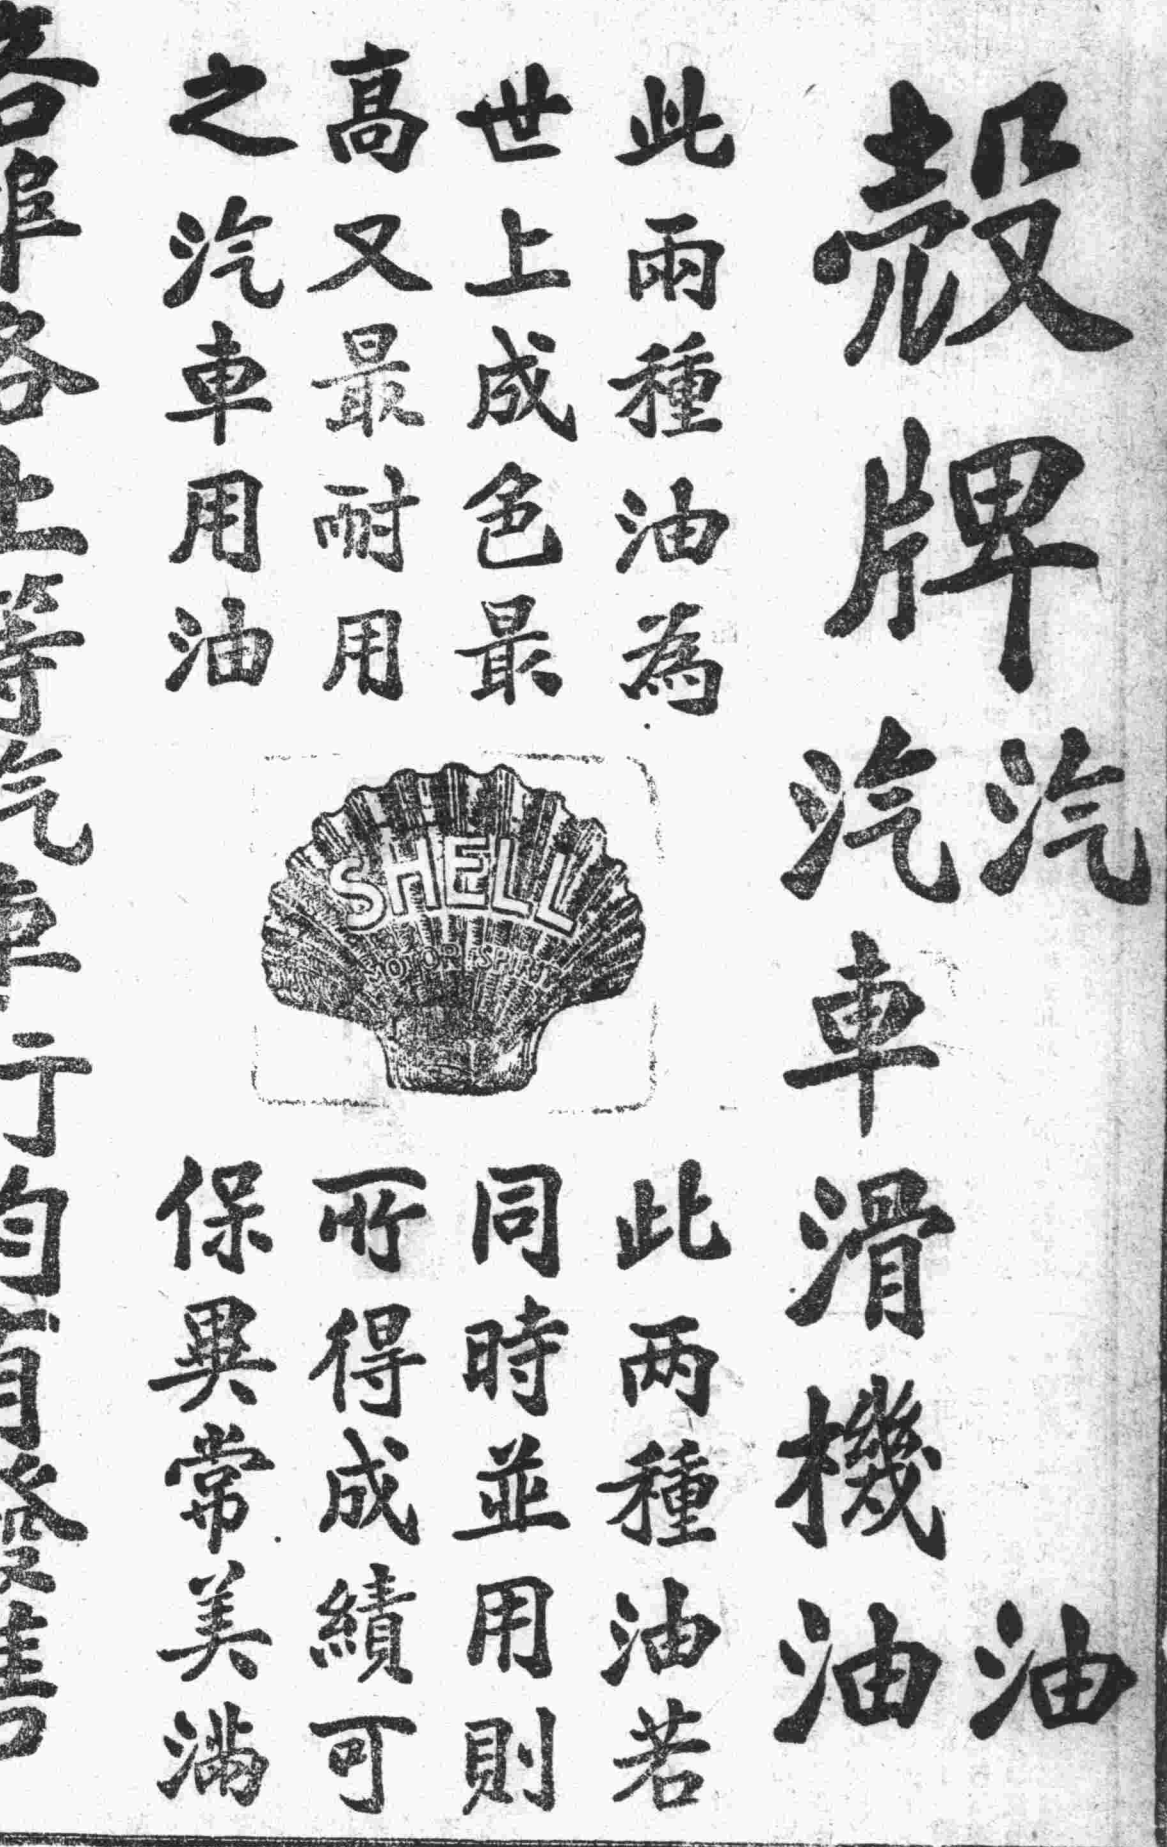 殼牌
汽油
汽車滑機油
此兩種油為
世上成色最
高又最耐用
之汽車用油
SHELL
MOTOR SPIRIT
此两種油若
同時並用則
所得成績可
保異常美滿
各埠各上等汽車行均有發售